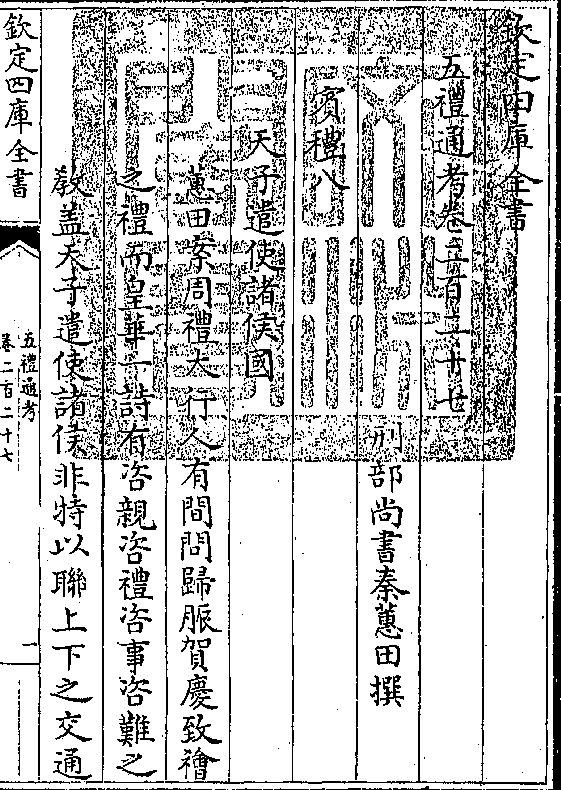 欽定四庫全書
五禮通考卷二百二十七
刑部尚書秦蕙田撰
賓禮八
天子遣使諸侯國
蕙田案周禮大行人有間問歸脤賀慶致禬
之禮而皇華一詩有咨親咨禮咨事咨難之
敎蓋天子遣使諸侯非特以聯上下之交通
欽定四庫全書
五禮通考
卷二百二十七
一